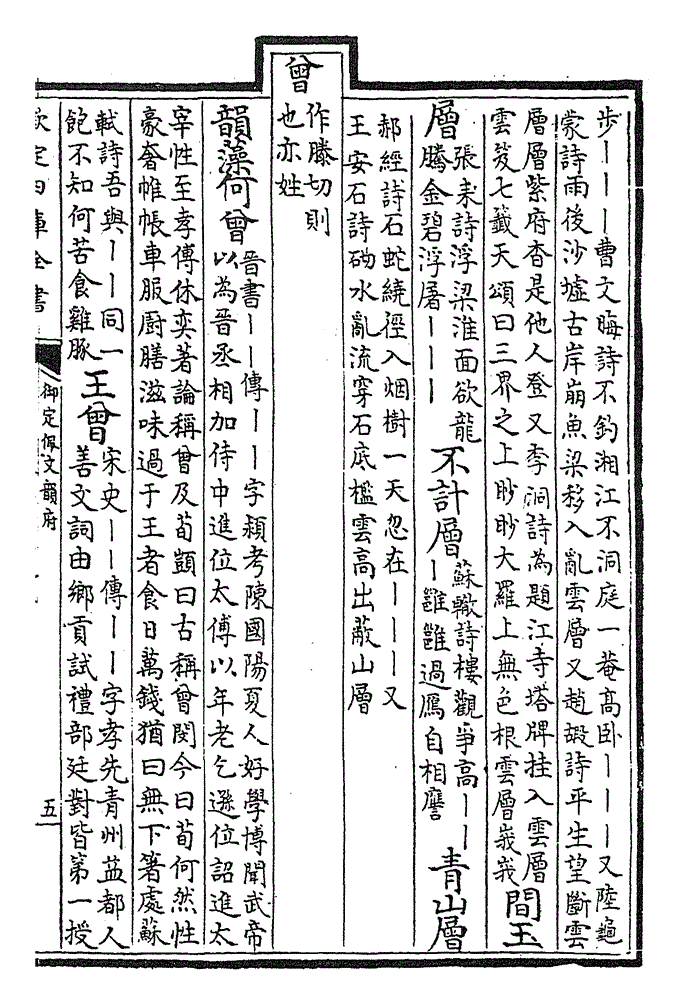 步丨丨丨曹文晦詩不釣湘江不洞庭一菴高卧丨丨丨又陸龜
蒙詩雨後沙墟古岸崩魚梁移入亂雲層又趙嘏詩平生望斷雲
層層紫府杳是他人登又李洞詩為題江寺塔牌挂入雲層
雲笈七籤天頌曰三界之上眇眇大羅上無色根雲層峩峩
間玉
層
張耒詩浮梁淮面欲龍
騰金碧浮屠丨丨丨
不計層
蘇轍詩樓觀爭高丨丨
丨雝雝過鴈自相譍
青山層
郝經詩石蛇繞徑入烟樹一天忽在丨丨丨又
王安石詩砌水亂流穿石底檻雲高出蔽山層
曾
作滕切則
也亦姓
韻藻何曾
晉書丨丨傳丨丨字頴考陳國陽夏人好學博聞武帝
以為晉丞相加侍中進位太傅以年老乞遜位詔進太
宰性至孝傅休奕著論稱曾及荀顗曰古稱曾閔今日荀何然性
豪奢帷帳車服厨膳滋味過于王者食日萬錢猶曰無下箸處蘇
軾詩吾與丨丨同一
飽不知何苦食雞豚
王曾
宋史丨丨傳丨丨字孝先青州益都人
善文詞由鄉貢試禮部廷對皆第一授
欽定四庫全書
御定佩文韻府
五